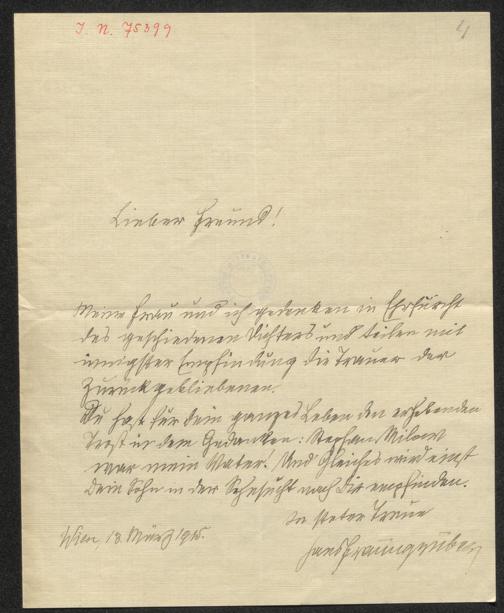 I. N. 75399
4
Lieber Freund!
Meine Frau und ich gedenken in Ehrfurcht
des geschiedenen Dichters und teilen mit
innigster Empfindung die Trauer der
Zurückgebliebenen.
Du hast für dein ganzes Leben den erhebenden
Trost in dem Gedanken: Stephan Milow
war mein Vater! Und Gleiches wird einst
Dein Sohn in der Sehnsucht nach Dir empfinden.
In steter Treue
Wien, 18. März 1915.
Hans Fraungruber